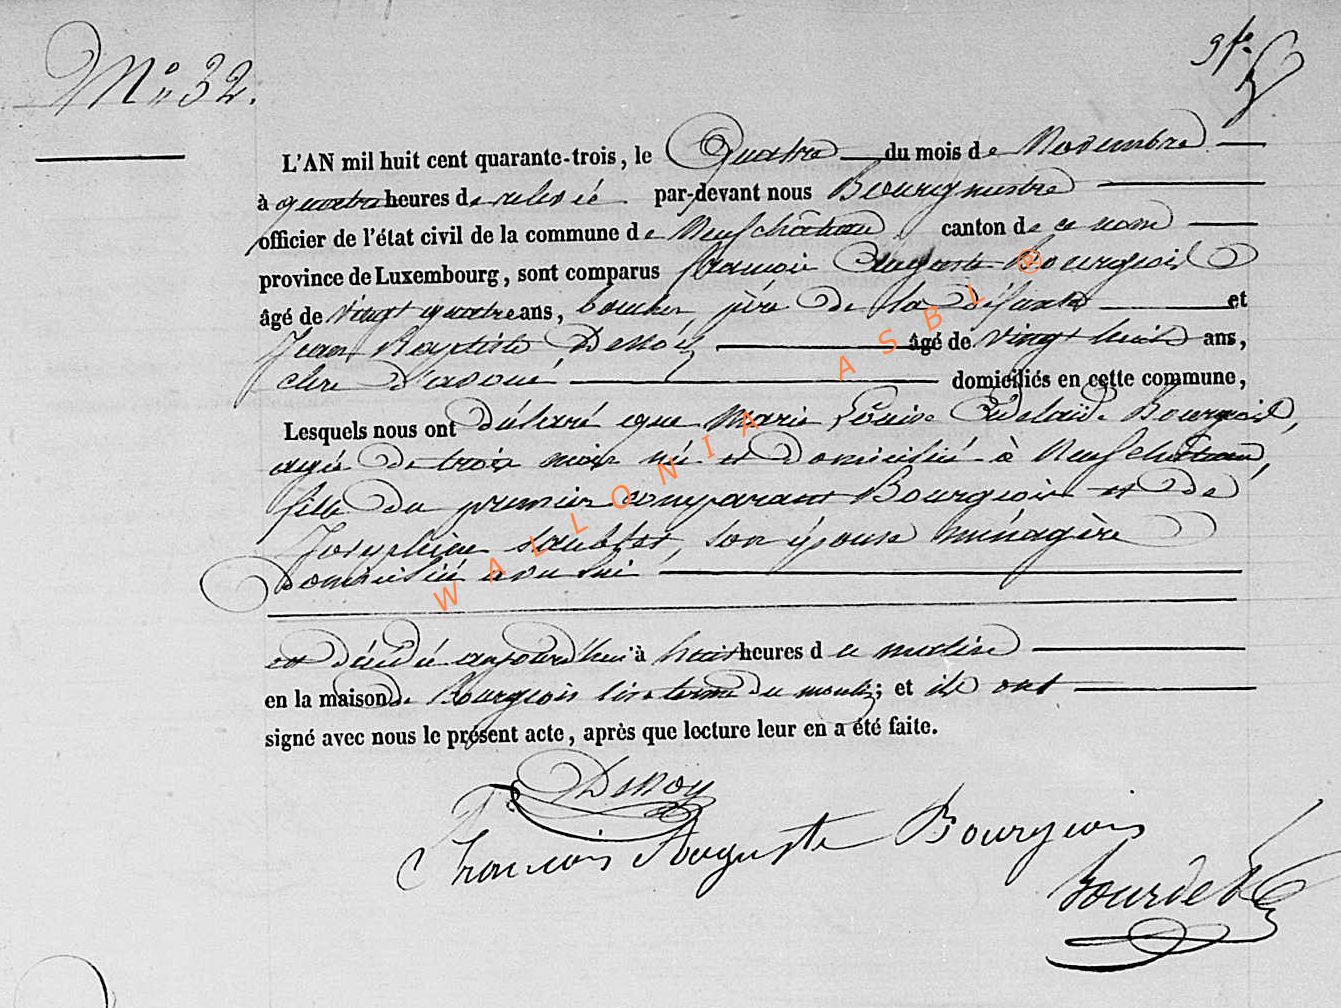 N° 32.
L'AN mil huit cent quarante-trois, le Quatre du mois de Novembre
à quatre heures de relevée par-devant nous Bourgmestre
officier de l'état civil de la commune de Neufchâteau canton de ce nom
province de Luxembourg, sont comparus francois Auguste Bourgeois
âgé de vingt quatre ans, boucher, père de la défunte et
Jean Baptiste Denoy âgé de vingt huit ans,
clerc d'avoué domiciliés en cette commune,
Lesquels nous ont déclaré que Marie Louise Adelaïde Bourgeois,
agée de trois mois née et domiciliée à Neufchâteau,
fille du premier comparant Bourgeois et de
Josephine, son épouse ménagère
domiciliée avec lui
est décédée aujourd'hui à huit heures d u matin
en la maison de Bourgeois du moulin; et ils ont
signé avec nous le présent acte, après que lecture leur en a été faite.
Denoy
Francois Auguste Bourgeois
WALLONIA ASBL ®